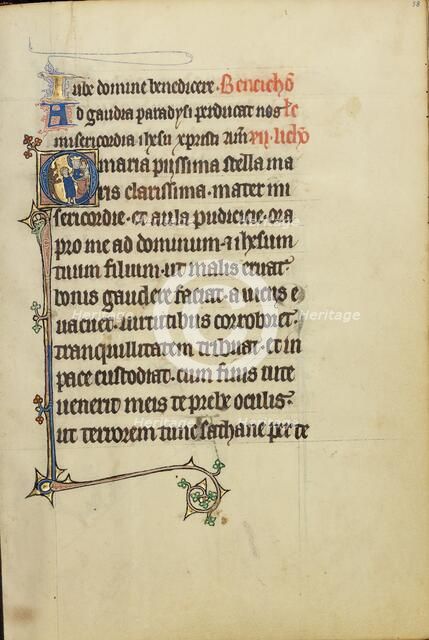 58
Iube domine benedicere. Beneicho
Ad gaudia paradysi perducat nos
misericordia ihesu xpristi am
O maria piissima stella ma
ris clarissima. mater mi
sericordie. et aula pudicicie. ora
pro me ad dominum. a ihesum
tuum filium. ut malis eruat.
bonis gaudere faciat. a uiciis e
uacuet. uirtutibus corroboret.
tranquillitatem tribuat. et in
pace custodiat. cum finis uite
uenerit meis te prebe oculis.
ut terrorem tunc sathane per te
Heritage Heritage
Heritage Heritage
Heritage Heritage